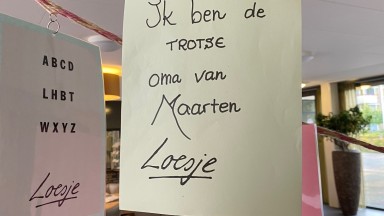 ABCD
LHBT
WXYZ
Loesje
Ik ben de
TROTSE
oma van
Maarten
Loesje